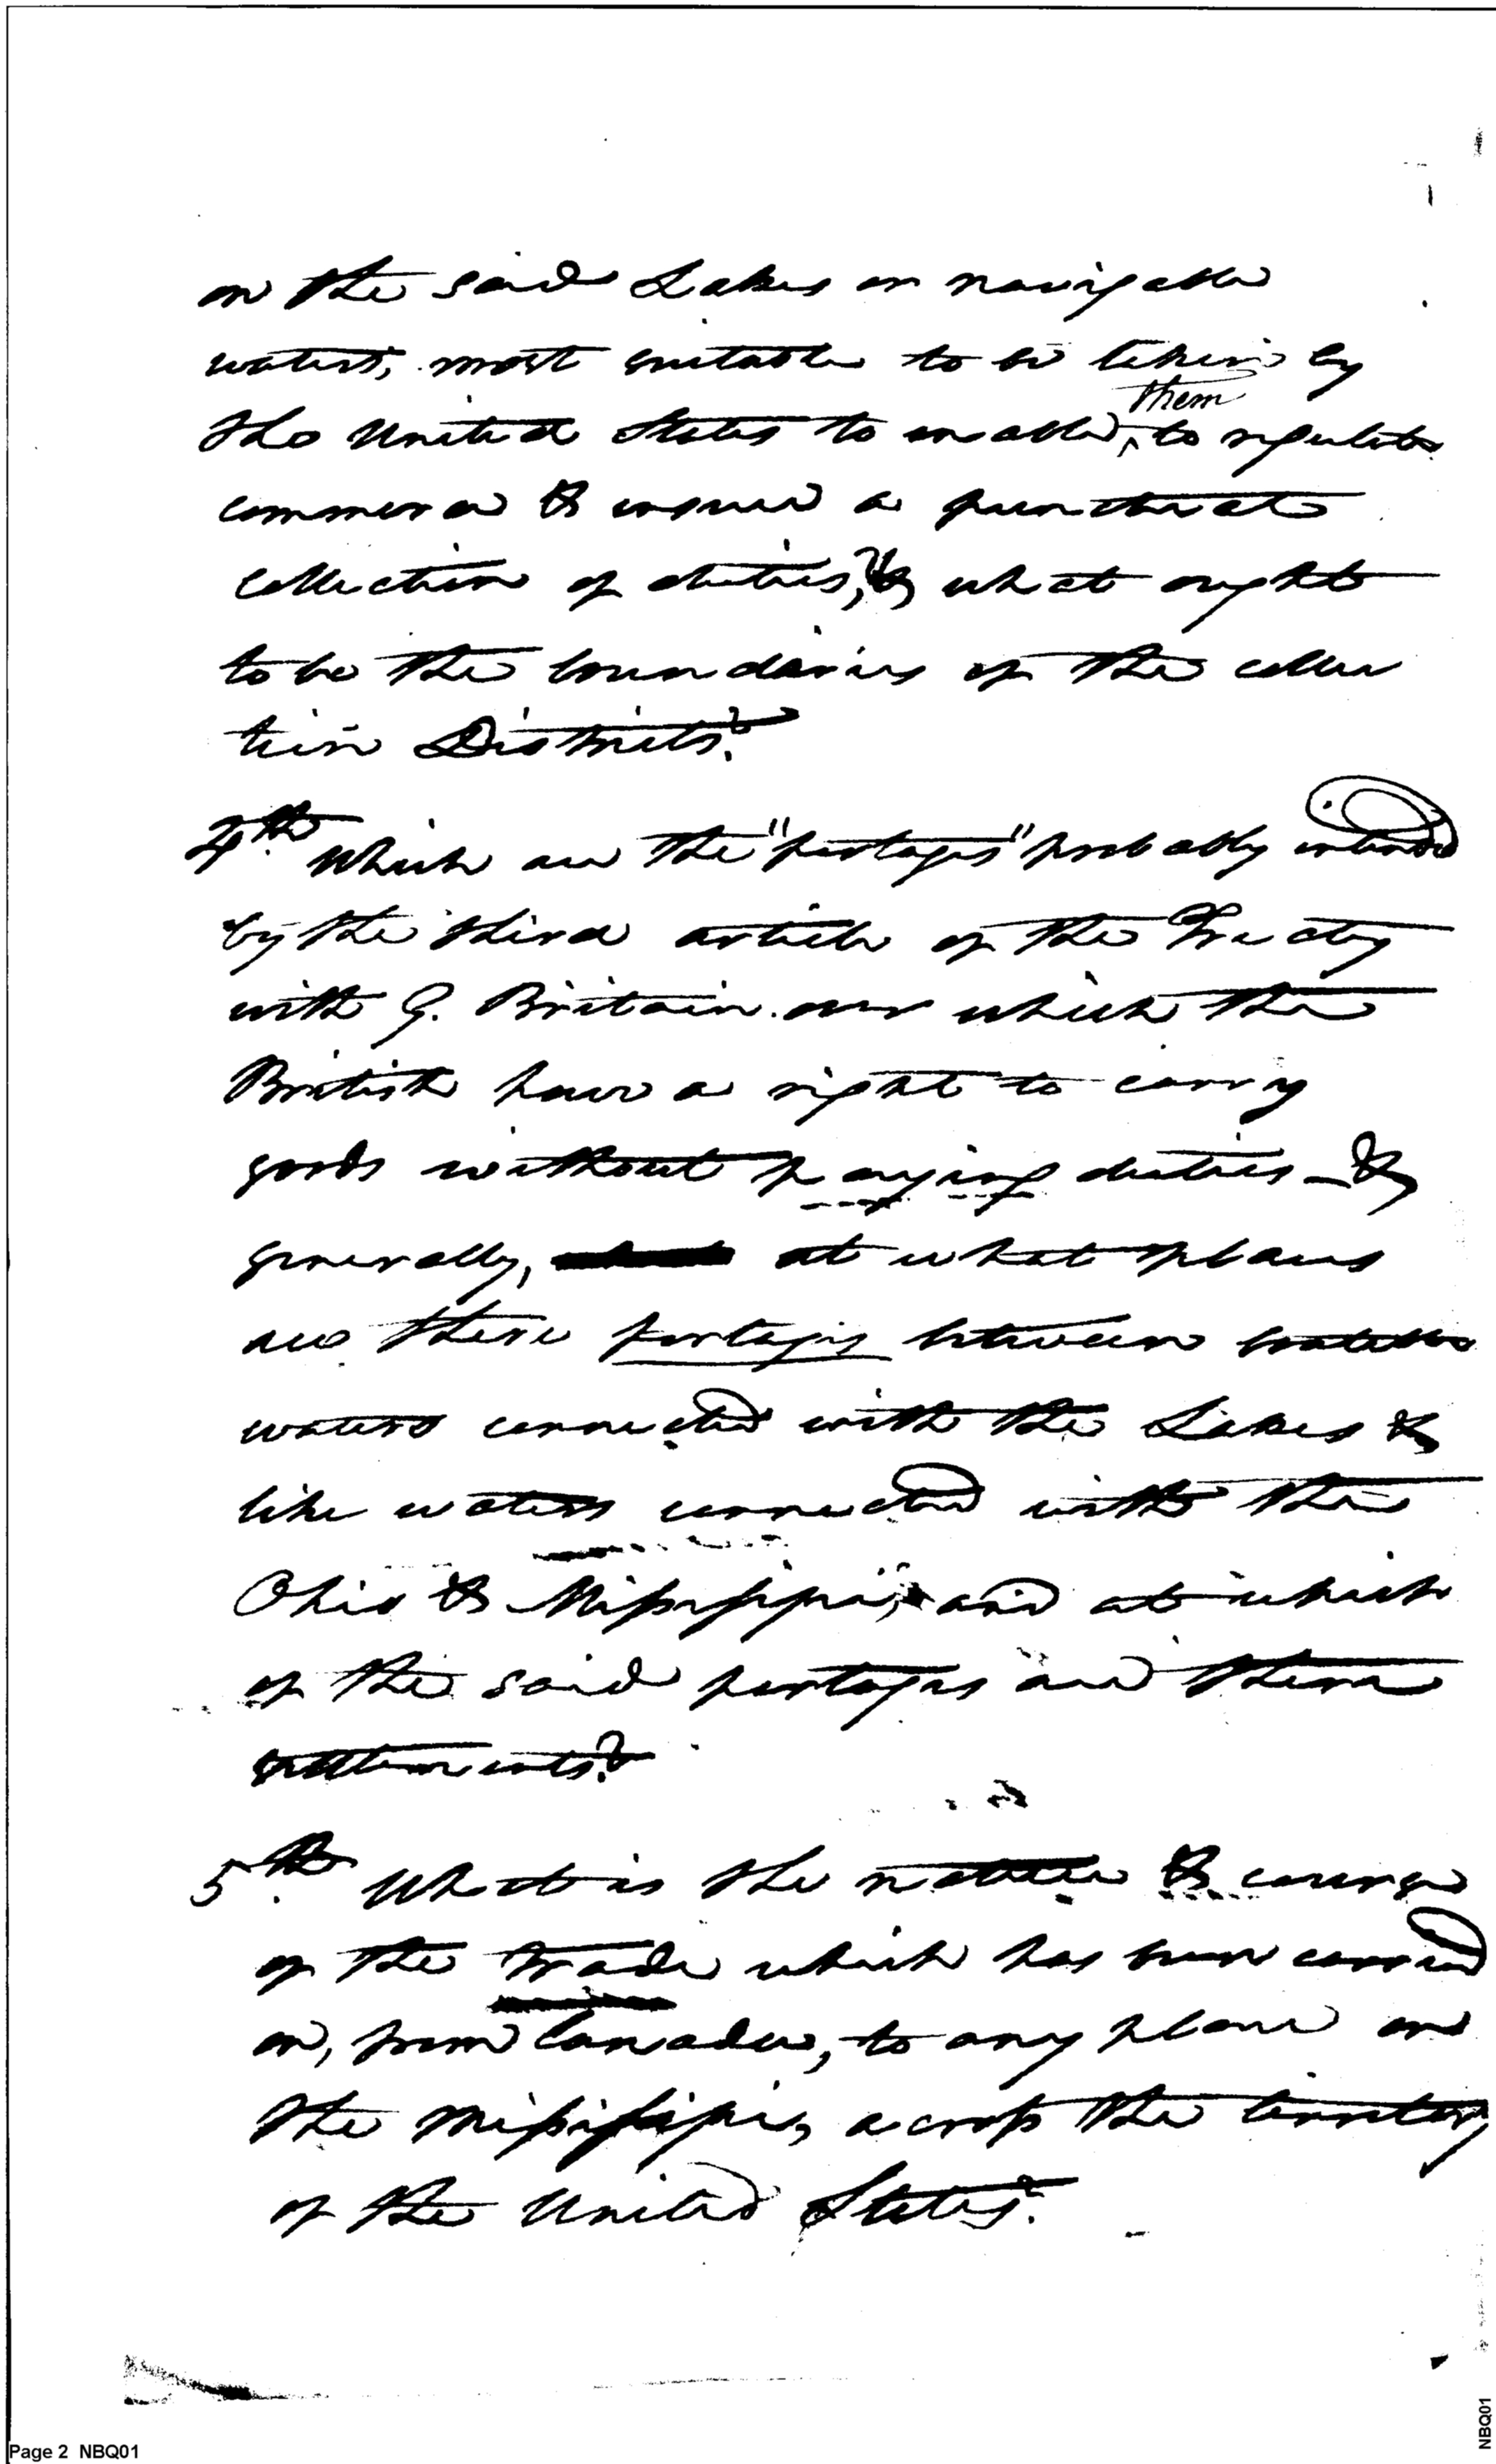 on the said Lakes or navigable
waters, most suitable to be taken by
them
the United States to enable ‸ to regulate
commerce & insure a punctual
collection of duties, & what ought
to be the boundaries of the collec
tion Districts?
4th Which are the "portages" probably intended
by the third article of the Treaty
with G. Britain over which the
British have a right to carry
goods without paying duties — &
generally, at what places
are there portages between
waters connected with the Lakes &
like waters connected with the
Ohio & Missisippi, and at which
of the said portages are there
settlements?
5th What is the nature & course
of the trade which has been carried
on, from Canada, to any place on
the Missisippi, across the territory
of the United States?
Page 2 NBQ01
NBQ01